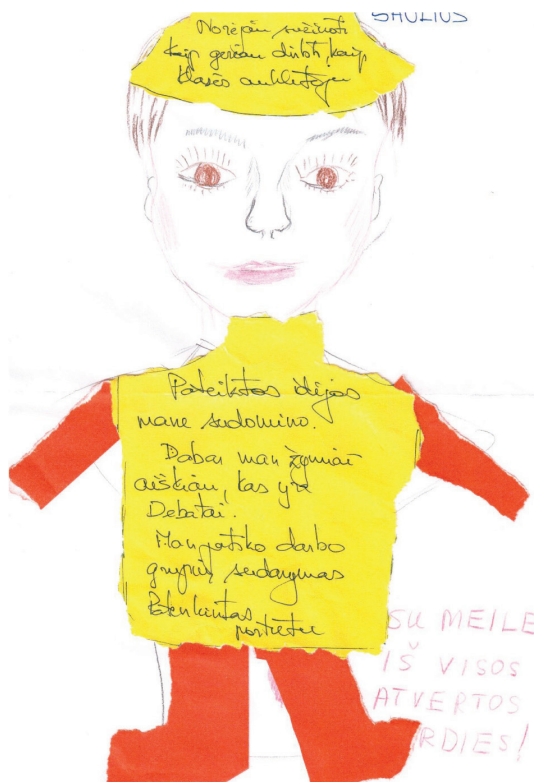 SAULIUS
Norėjau sužinoti
Kaip geriau dirbti, kaip
klasės auklėtojui
Pateiktos idėjos
mane sudomino.
Dabar man žymiai
aiškiau, kas yra
Debatai.
Man patiko darbo
grupių sudarymas
Patenkintas
portretu
SU MEILE
IŠ VISOS
ATVERTOS
RDIES!